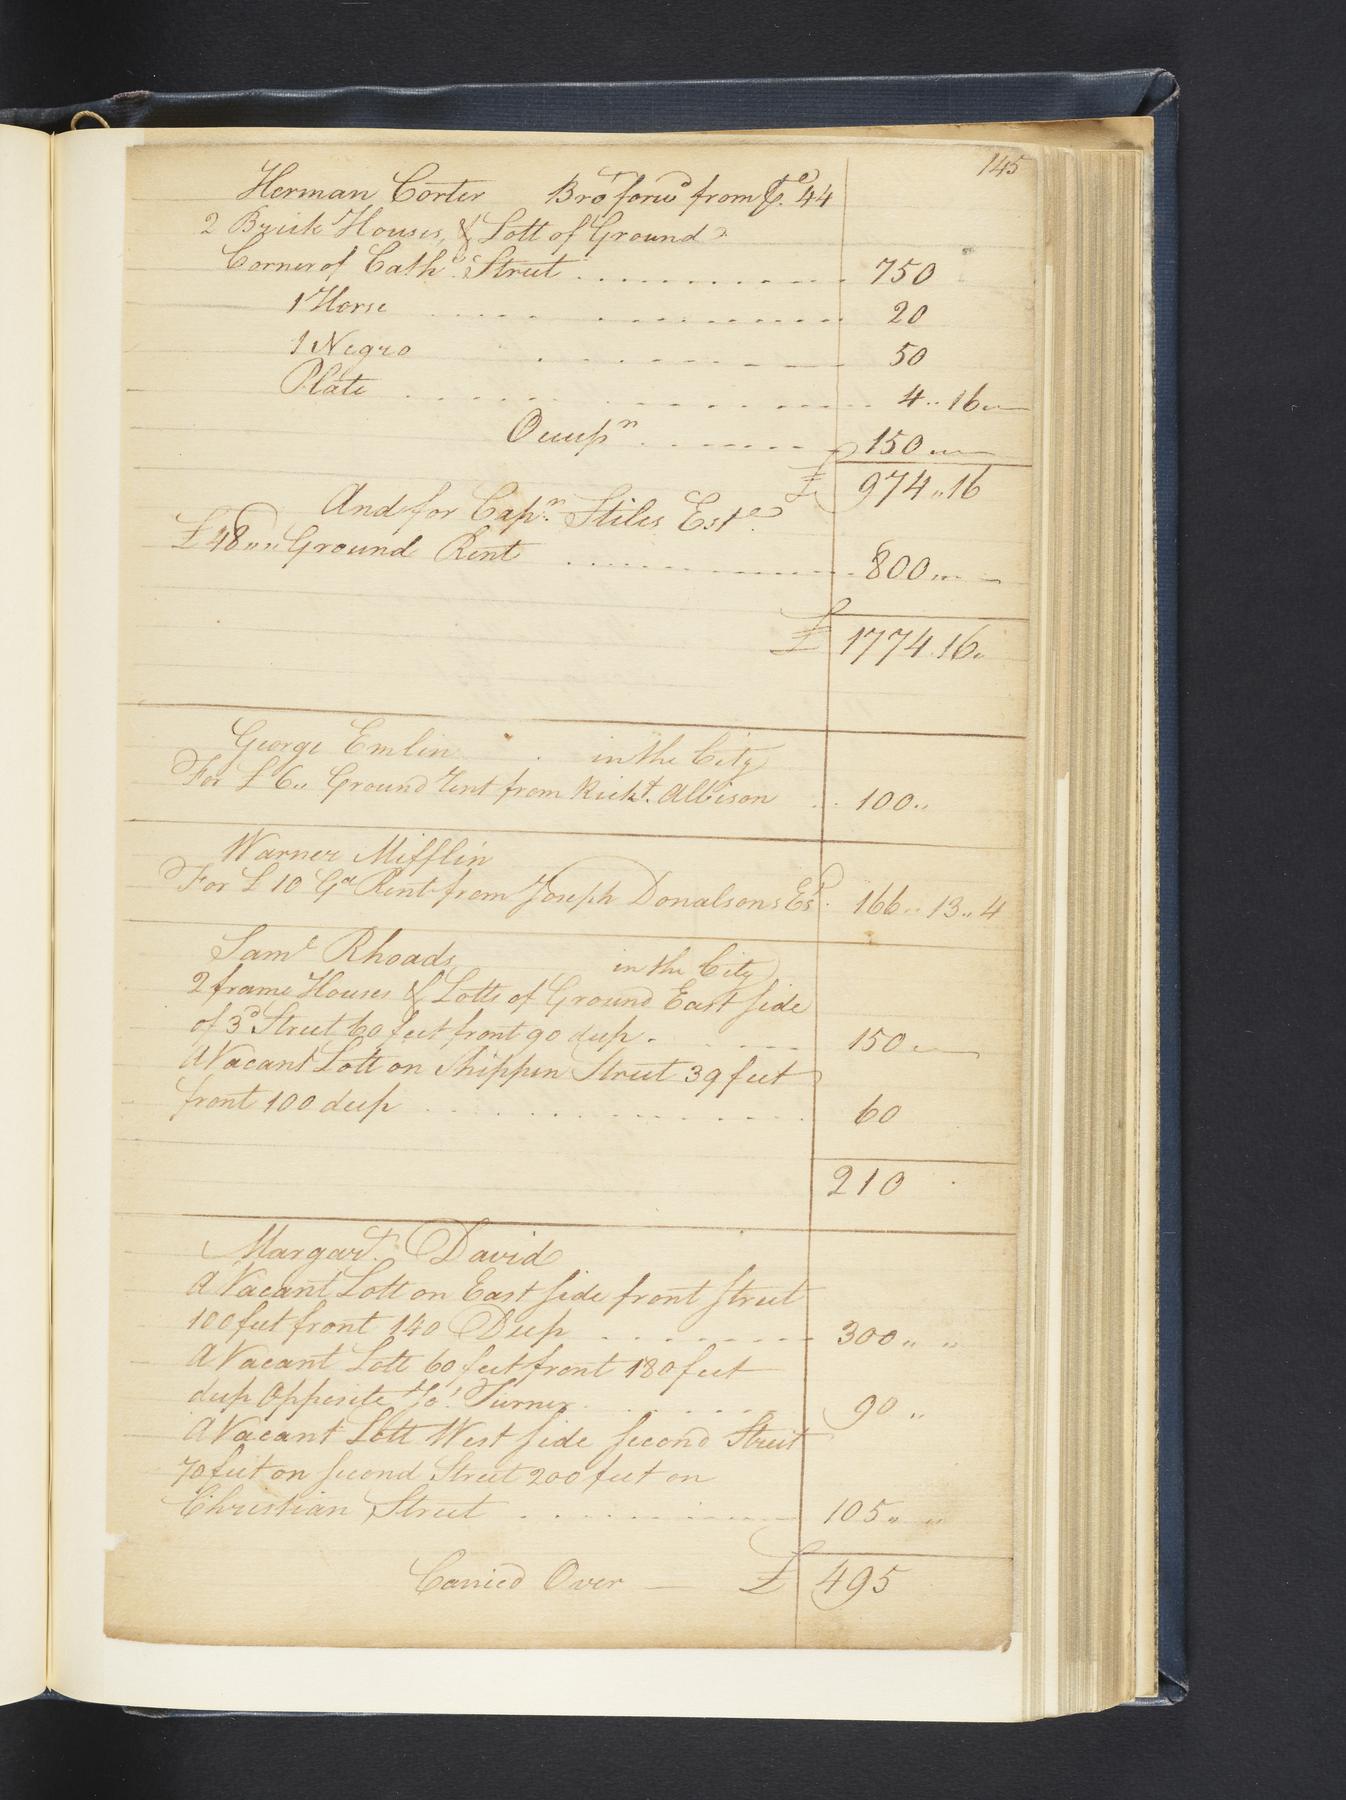 145
Herman Corter Bro.t forwd from fo. 44
2 Brick Houses, & Lott of Ground
Corner of Cathe. Street 750
1 Horse 20
1 Negro 50
Plate 4 „ 16 „
Occupn 150 „
£ 974 „ 16
And for Capn. Stiles Este
£48 „ „ Ground Rent 800 „
£ 1774 . 16 „
George Emlin in the City
For £ 6 „ Ground Rent from Richd. Allison 100 „
Warner Mifflin
For £ 10 Gd Rent from Joseph Donalsons Est. 166 „ 13 „ 4
Saml Rhoads in the City
2 frame Houses & Lotts of Ground East side
of 3d Street 60 feet front 90 deep 150 „
A Vacant Lott on Shippen Street 39 feet
front 100 deep 60
210
Margart. David
A Vacant Lott on East side front street
100 feet front 140 Deep 300 „ „
A Vacant Lott 60 feet front 180 feet
deep Opposite Jos. Turner 90 „
A Vacant Lott West side second Street
70 feet on second Street 200 feet on
Christian Street 105 „ „
Carried Over £ 495